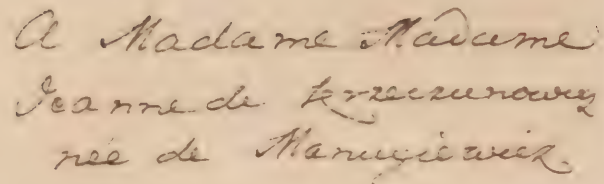 A Madame Madame
Jeanne de Krzeczunowicz
née de Manugiewicz